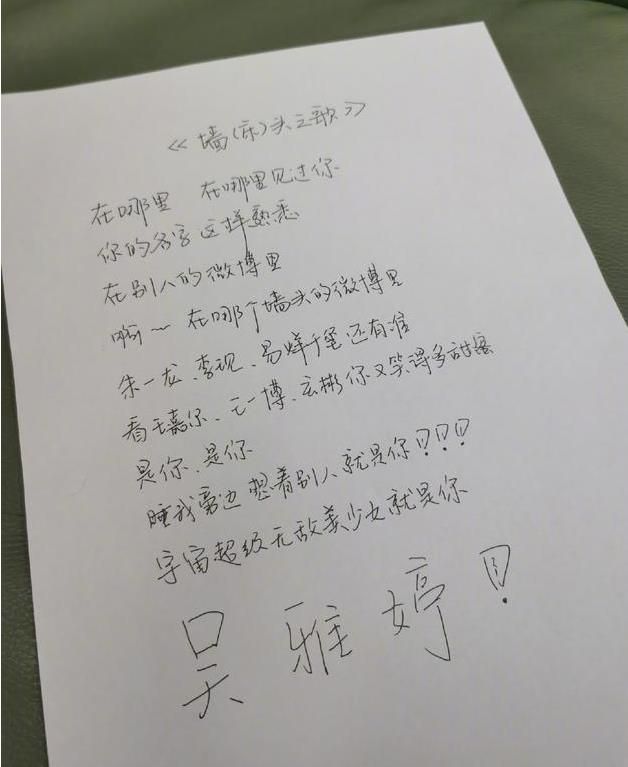 《墙(床)头之歌》
在哪里 在哪里见过你
你的名字这样熟悉
在别人的微博里
啊~在哪个墙头的微博里
朱一龙、李现、易烊千玺还有谁
看王嘉尔、王一博、玄彬你又笑得多甜蜜
是你、是你
睡我旁边想着别人就是你!!!
宇宙超级无敌美少女就是你
吴雅婷!